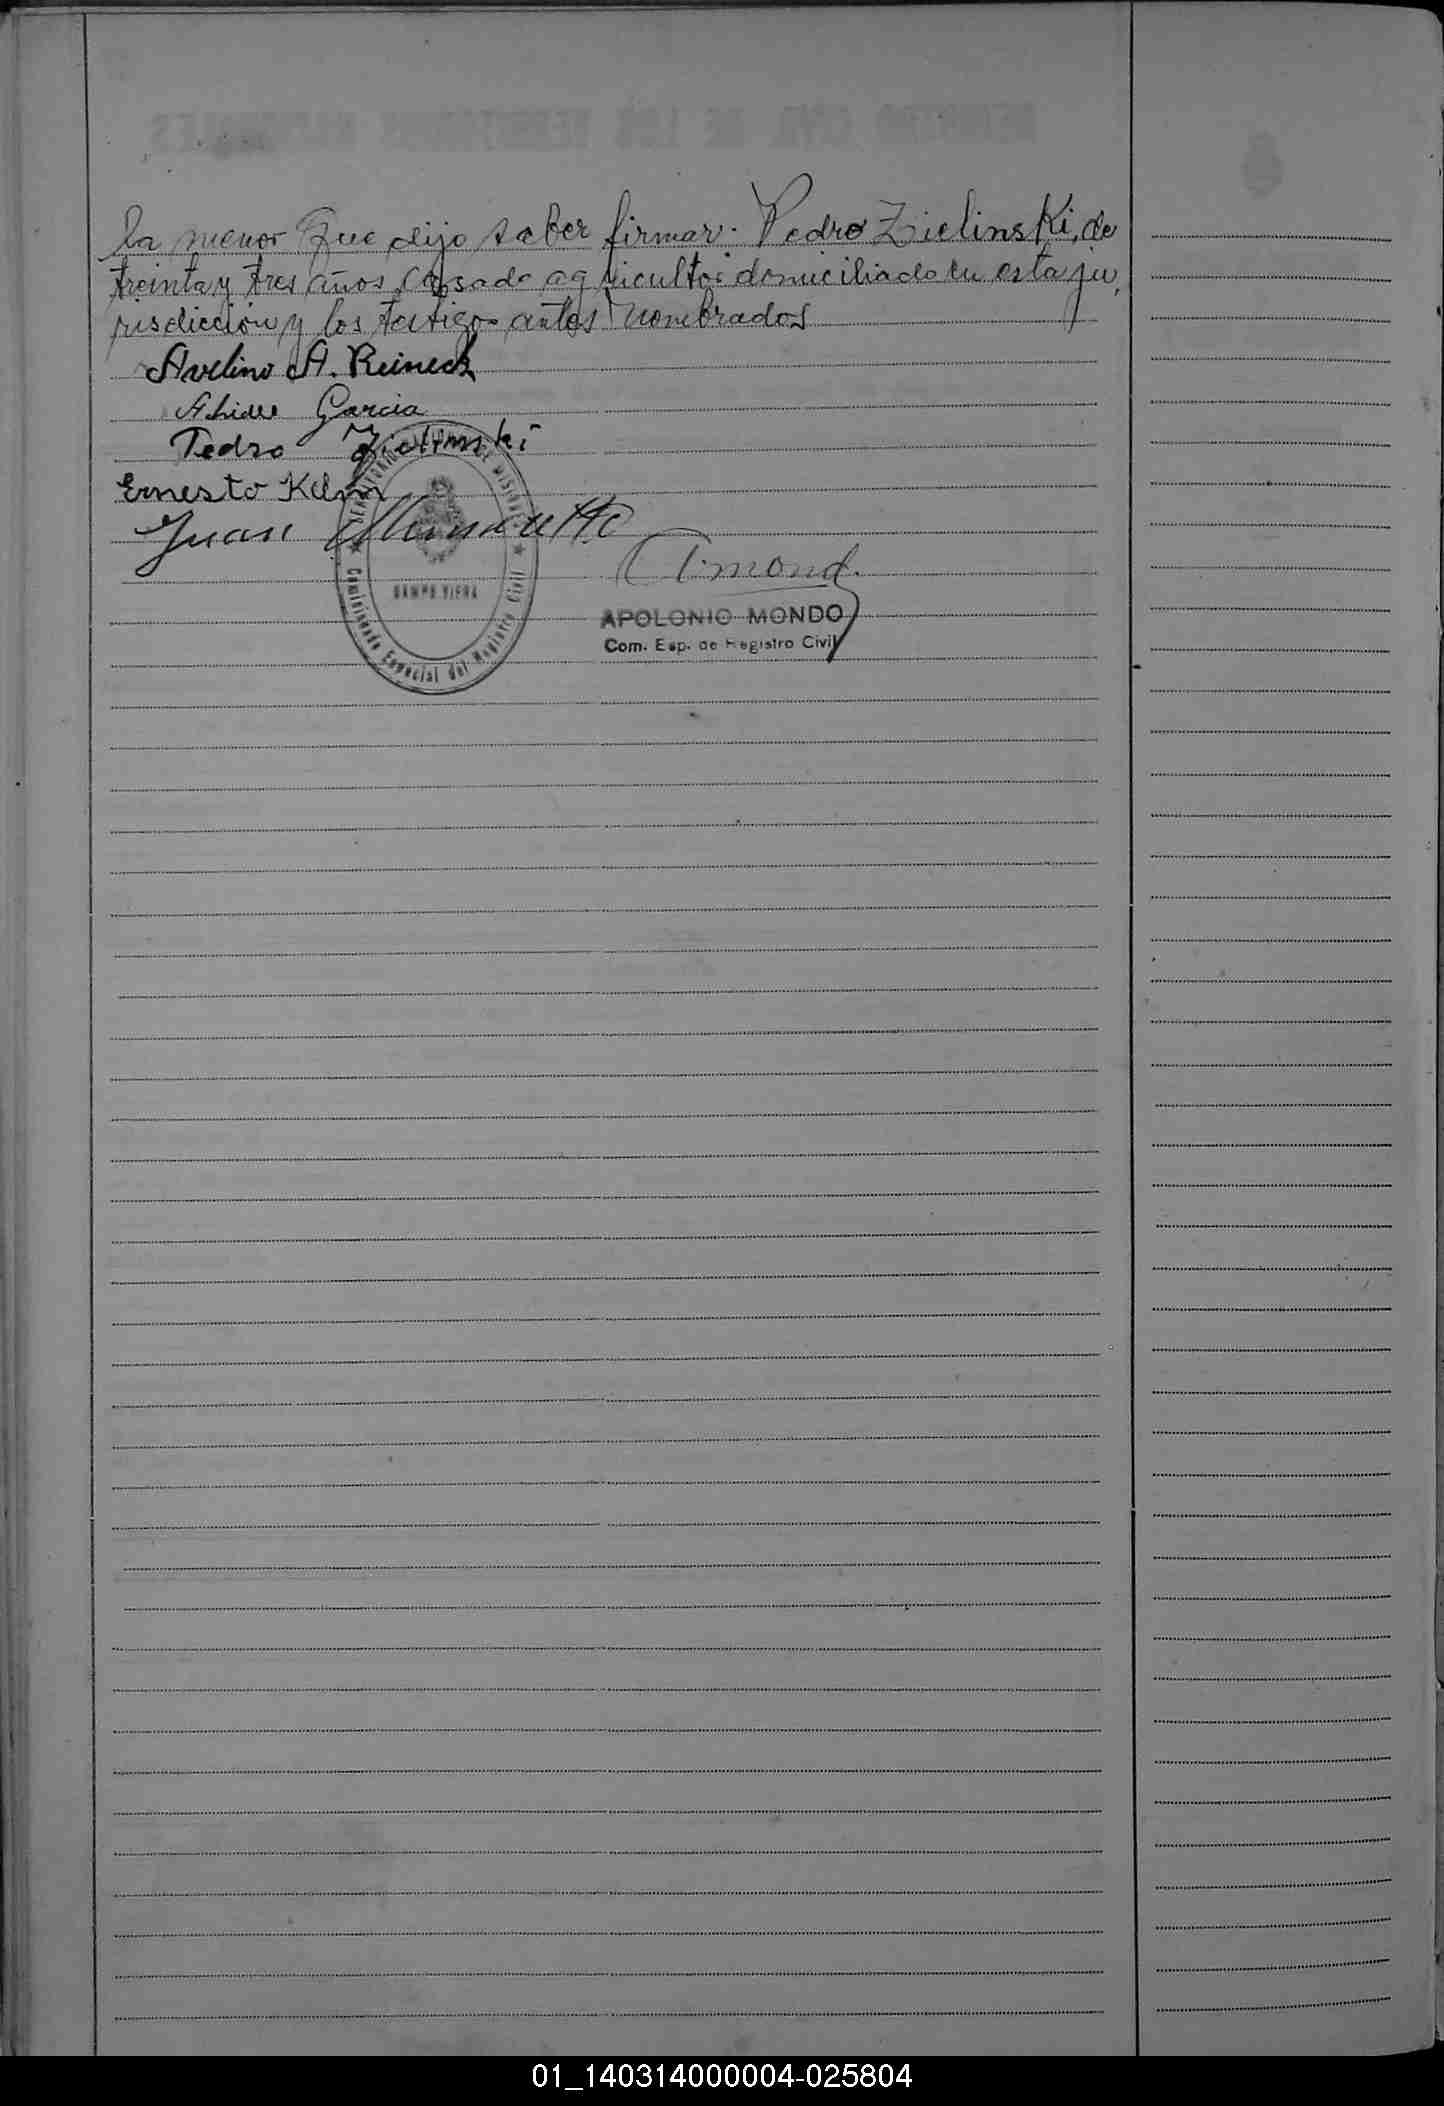 la menor que dijo saber firmar. Pedro Zielinski, de
treinta y tres años, casado agricultor domiciliado en esta ju,
risdicción y los testigos antes nombrados
Avelino A. Reineck
Garcia
Pedro Zielinski
Ernesto
Juan
APOLONIO MONDO
Com. Esp. de Registro Civil
CAMPO VIERA
Comisionado Especial del Registro Civil
01_140314000004-025804